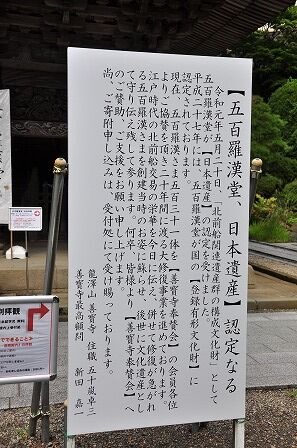 【五百羅漢堂、日本遺産】認定なる
令和元年五月二十日、「北前船関連遺産群の構成文化財」として
五百羅漢堂が【日本遺産】の認定を受けました。
平成二十七年には、五百羅漢堂が国の【登録有形文化財】に
認定されております。
現在、五百羅漢さま五百三十一体を【善寳寺奉賛会】の会員各位
よりご協賛を頂き二十年間に渡る大修復事業を進めております。
江戸時代の北前船交易の栄華を今日に伝え、併せて修復が急がれ
る五百羅漢さまを創建当時のお姿に蘇らせ、後世に文化遺産とし
て守り伝え残して参ります。何卒、皆様より【善寳寺奉賛会】へ
のご賛助、ご支援をお願い申し上げます。
尚、ご寄附申し込みは、受付処にて受け賜っております。
龍澤山 善寳寺 住職 五十嵐卓三
善寳寺最高顧問 新田 嘉一